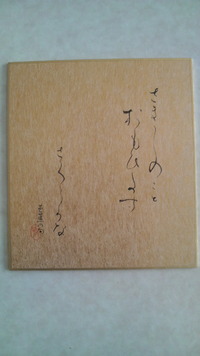 さま〴〵のこと
おもひ出す
さくらかな